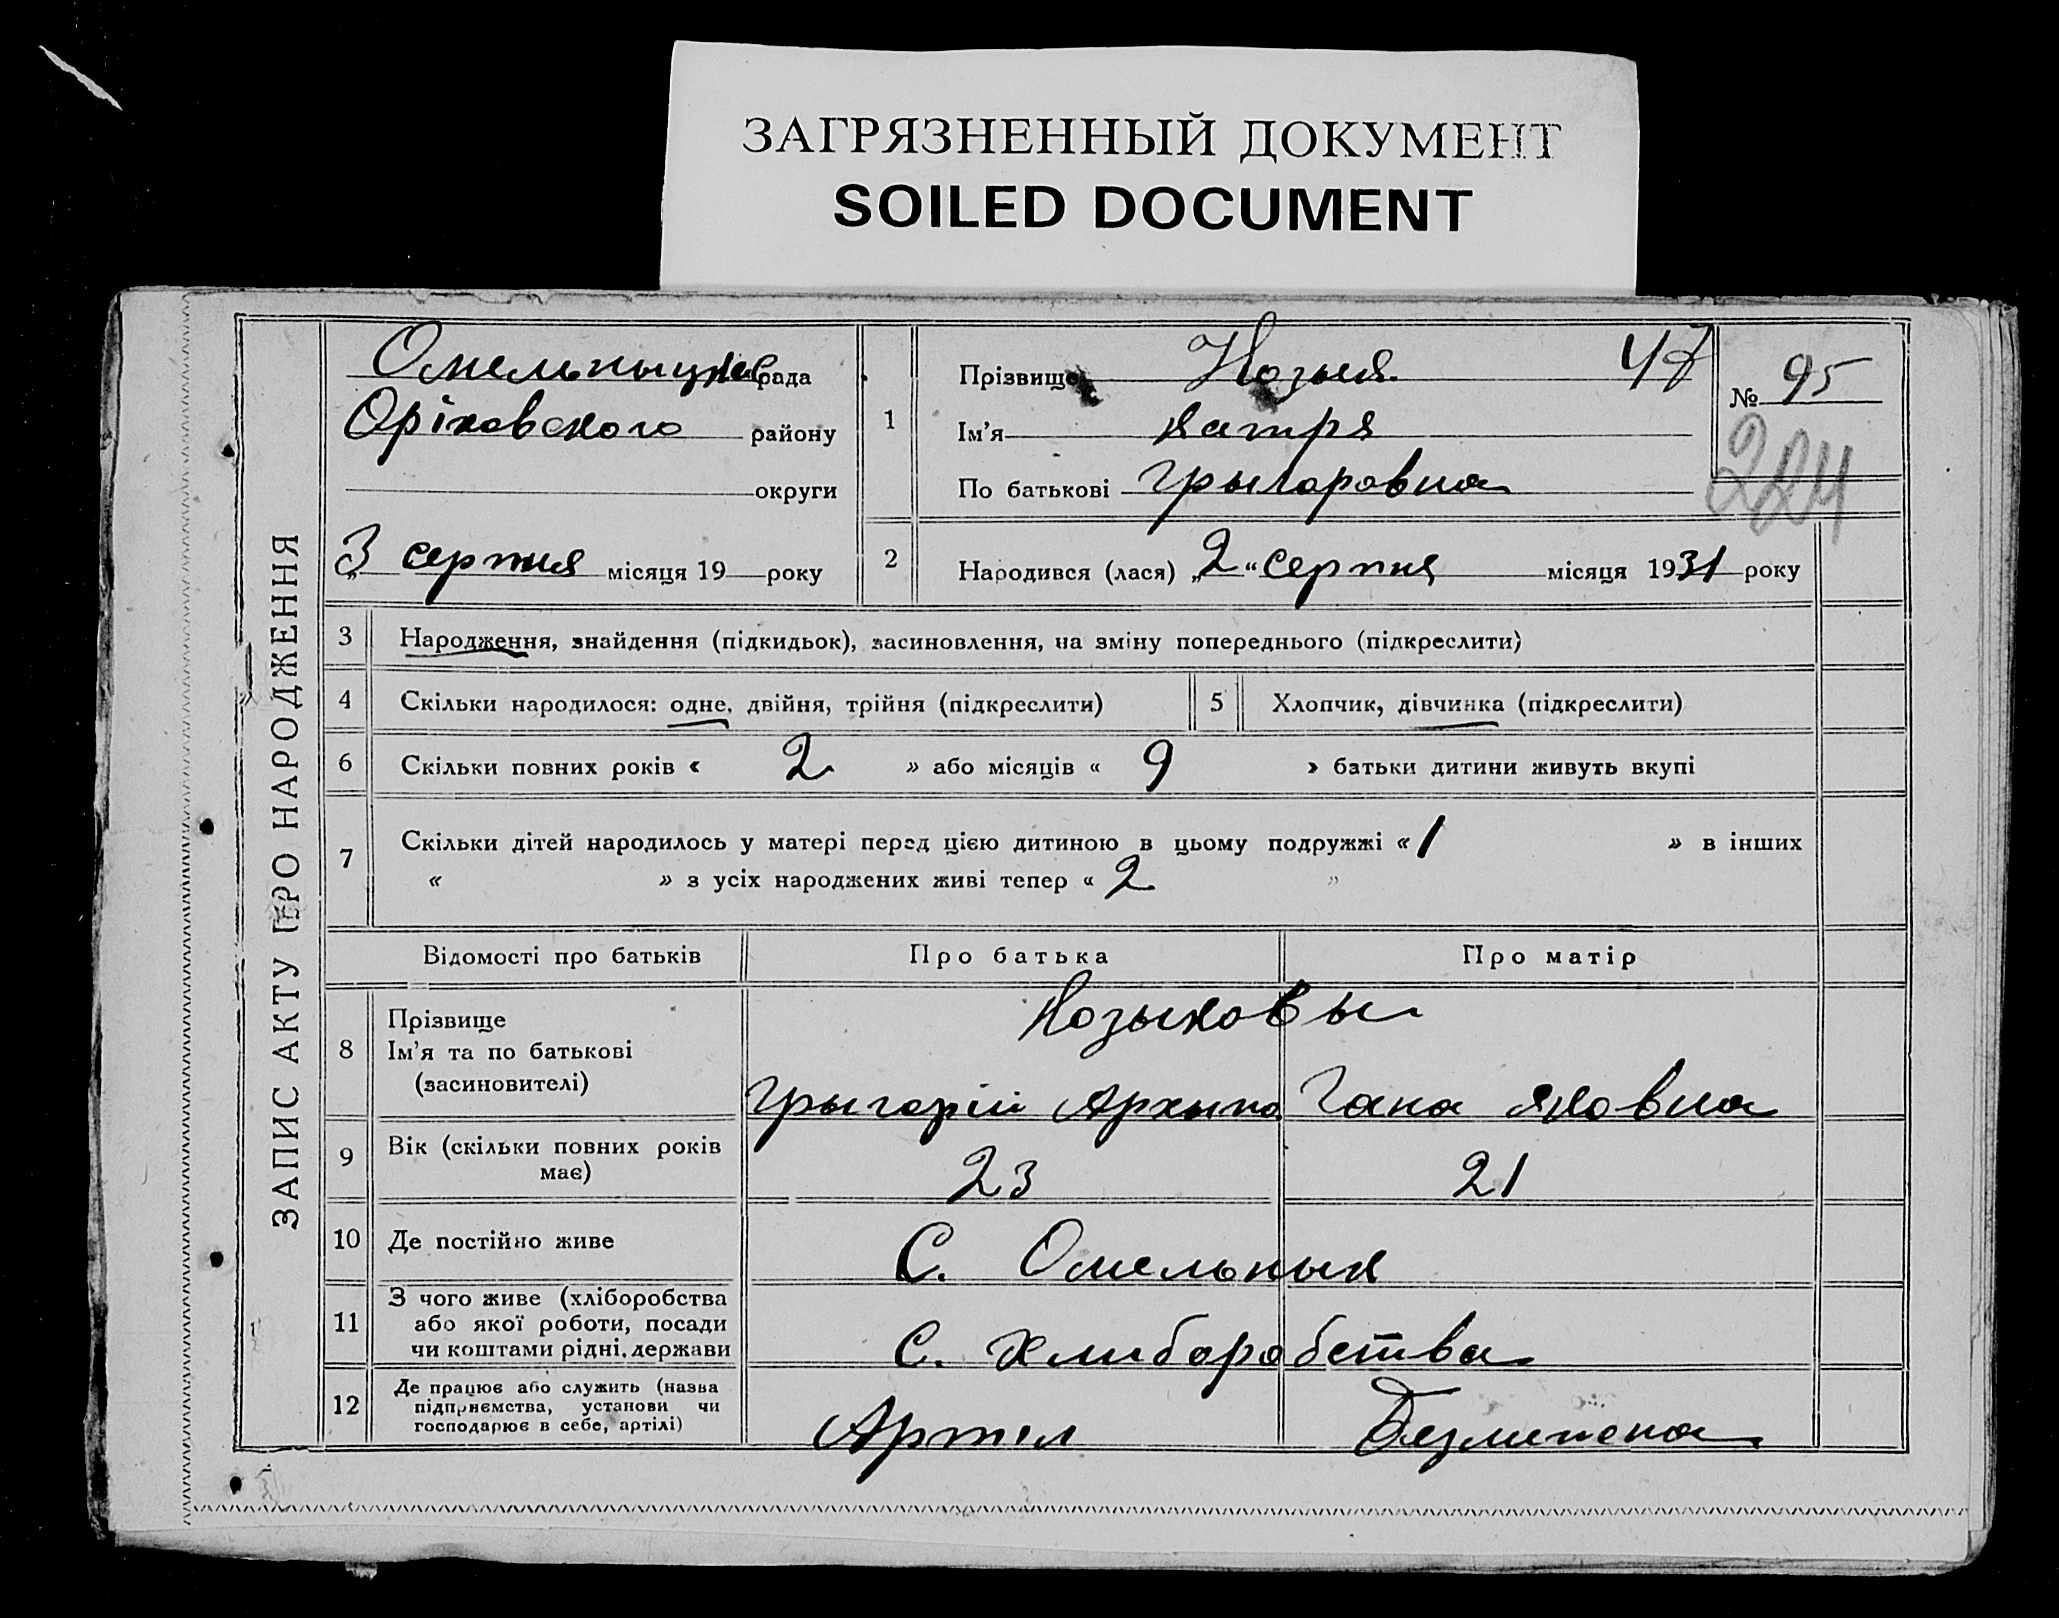 ЗАГРЯЗНЕННЫЙ ДОКУМЕНТ
SOILED DOCUMENT
ЗАПИС АКТУ ПРО НАРОДЖЕННЯ
Омельныцкая рада
Оріховского району
округи
„3 серпня місяця 19 року
1
Прізвище Козыя 47
Ім'я Катря
По батькові Грыгоровна
№ 95
224
2 Народився (лася) „2“ Серпня місяця 1931 року
3 Народження, знайдення (підкидьок), засиновлення, на зміну попереднього (підкреслити)
4 Скільки народилося: одне, двійня, трійня (підкреслити) 5 Хлопчик, дівчинка (підкреслити)
6 Скільки повних років « 2 » або місяців « 9 » батьки дитини живуть вкупі
7 Скільки дітей народилось у матері перед цією дитиною в цьому подружжі « 1 » в інших
« » з усіх народжених живі тепер « 2 »
Відомості про батьків Про батька Про матір
8 Прізвище
Ім'я та по батькові
(засиновителі)
Козыковы
Грыгорій Архыпо Гана Яковна
9 Вік (скільки повних років
має)
23 21
10 Де постійно живе С. Омельнык
11 З чого живе (хліборобства
або якої роботи, посади
чи коштами рідні, держави
С. Хлиборобства
12 Де працює або служить (назва
підприємства, установи чи
господарює в себе, артілі)
Артіл